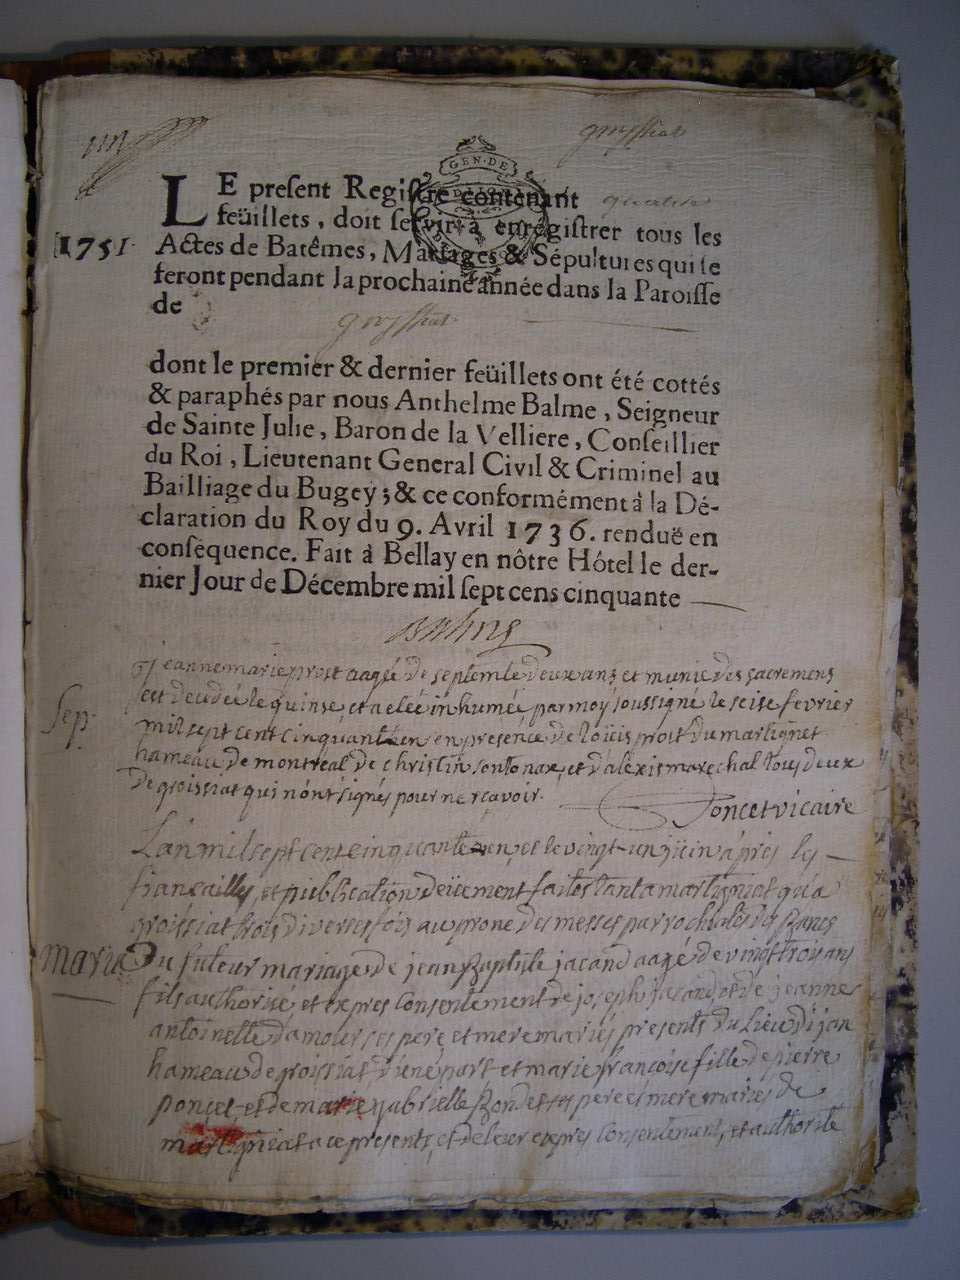 un
groissiat
GEN. DE
LE preſent Regiſtre contenant quatre
feüillets, doit ſervir à enregiſtrer tous les
1751. Actes de Batêmes, Mariages & Sépultures qui ſe
feront pendant la prochaine année dans la Paroiſſe
de groissiat
dont le premier & dernier feüillets ont été cottés
& paraphés par nous Anthelme Balme, Seigneur
de Sainte Julie, Baron de la Velliere, Conſeillier
du Roi, Lieutenant General Civil & Criminel au
Bailliage du Bugey; & ce conformément à la Dé-
claration du Roy du 9. Avril 1736. renduë en
conſéquence. Fait à Bellay en nôtre Hôtel le der-
nier Jour de Décembre mil ſept cens cinquante
Balme
jeanne marie prost aagée de septente deux ans et munie des sacremens
Sep. est decedée le quinse, et a eté inhumée par moy soussigné le seise fevrier
mil sept cent cinquante un en presence de loüis prost du martignet
hameau de montreal de christin sontonax, et d'alexis marechal tous deux
de groissiat qui n'ont signés pour ne sçavoir.
Poncet vicaire
L'an mil sept cent cinquante un, et le vingt-un juin après les
fiancailles, et publication deüement faites tant a martigniat qu'a
groissiat trois diverses fois au prone des messes parrochiales des bans
maria du futeur mariage de jean Baptiste jacand aagé de vingt trois ans
fils authorisé, et expres consentement de joseph jacand, et de jeanne
antoinette damour ses pere, et mere mariés presents du lieu dijan
hameau de groissiat d'une part et marie françoise fille de pierre
poncet, et de marie gabrielle Bondet ses pere et mere mariés de
martigniat a ce presents, et de leur expres consentement, et authorité